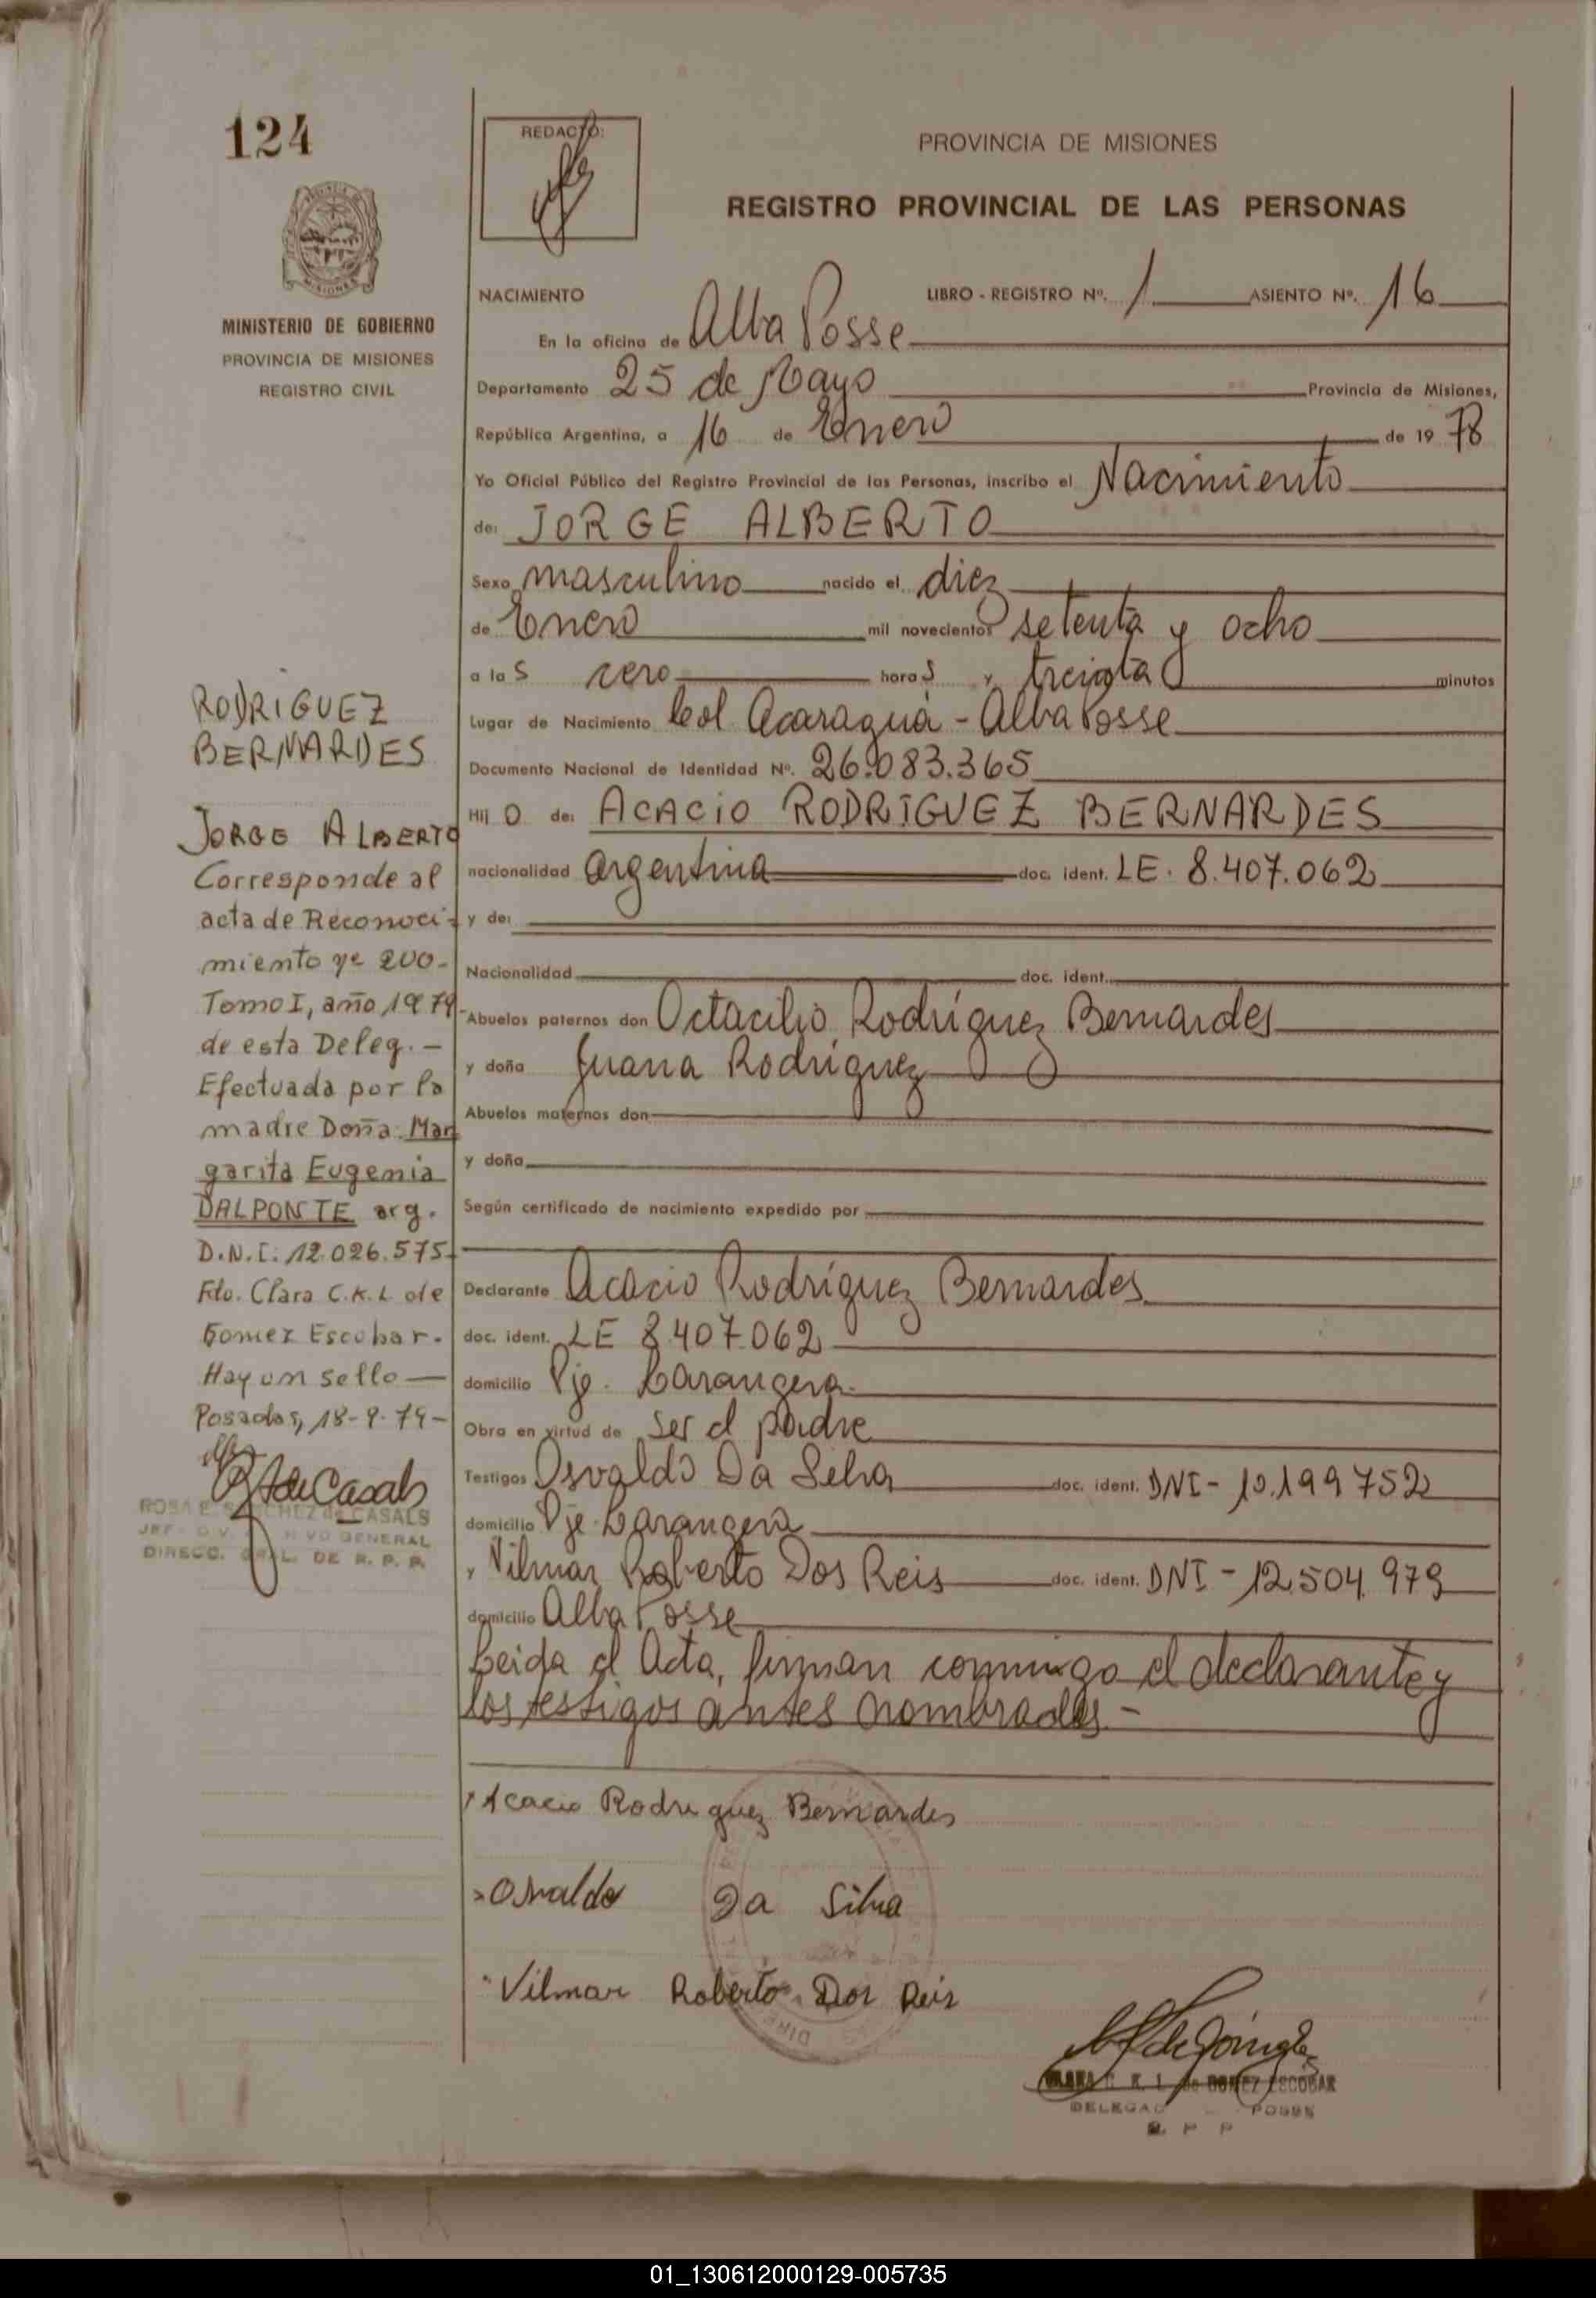 124
REDACTO:
PROVINCIA DE MISIONES
REGISTRO PROVINCIAL DE LAS PERSONAS
MINISTERIO DE GOBIERNO
PROVINCIA DE MISIONES
REGISTRO CIVIL
NACIMIENTO LIBRO - REGISTRO Nº. 1 ASIENTO Nº. 16
En la oficina de Alba Posse
Departamento 25 de Mayo Provincia de Misiones,
República Argentina, a 16 de Enero de 1978
Yo Oficial Público del Registro Provincial de las Personas, inscribo el Nacimiento
de: JORGE ALBERTO
Sexo masculino nacido el diez
de Enero mil novecientos setenta y ocho
a las cero horas y treinta minutos
Lugar de Nacimiento Col Acaraguá - Alba Posse
Documento Nacional de Identidad Nº. 26.083.365
Hijo de: ACACIO RODRIGUEZ BERNARDES
nacionalidad argentina doc. ident. LE. 8.407.062
y de:
Nacionalidad doc. ident.
Abuelos paternos don Octacilio Rodríguez Bernardes
y doña Juana Rodríguez
Abuelos maternos don
y doña
Según certificado de nacimiento expedido por
Declarante Acacio Rodríguez Bernardes
doc. ident. LE 8.407.062
domicilio Pje. Barangera
Obra en virtud de ser el padre
Testigos Osvaldo Da Silva doc. ident. DNI - 10.199752
domicilio Pje Barangera
y Vilmar Roberto Dos Reis doc. ident. DNI - 12.504.979
domicilio Alba Posse
Leida el Acta, firman conmigo el declarante y
los testigos antes nombrados. -
Acacio Rodriguez Bernardes
Osvaldo Da Silva
Vilmar Roberto Dos Reis
C. K. L. de GOMEZ ESCOBAR
POSSE
R. P. P
RODRIGUEZ
BERNARDES
JORGE ALBERTO
Corresponde al
acta de Reconoci-
miento nº 200-
Tomo I, año 1979-
de esta Deleg. -
Efectuada por la
madre Doña: Mar
garita Eugenia
DALPONTE arg.
D.N.I: 12.026.575-
Fdo. Clara C.K.L de
Gomez Escobar.
Hay un sello —
Posadas, 18-9-79-
ROSA E. SANCHEZ de CASALS
DIRECC. GRAL. DE R. P. P.
01_130612000129-005735